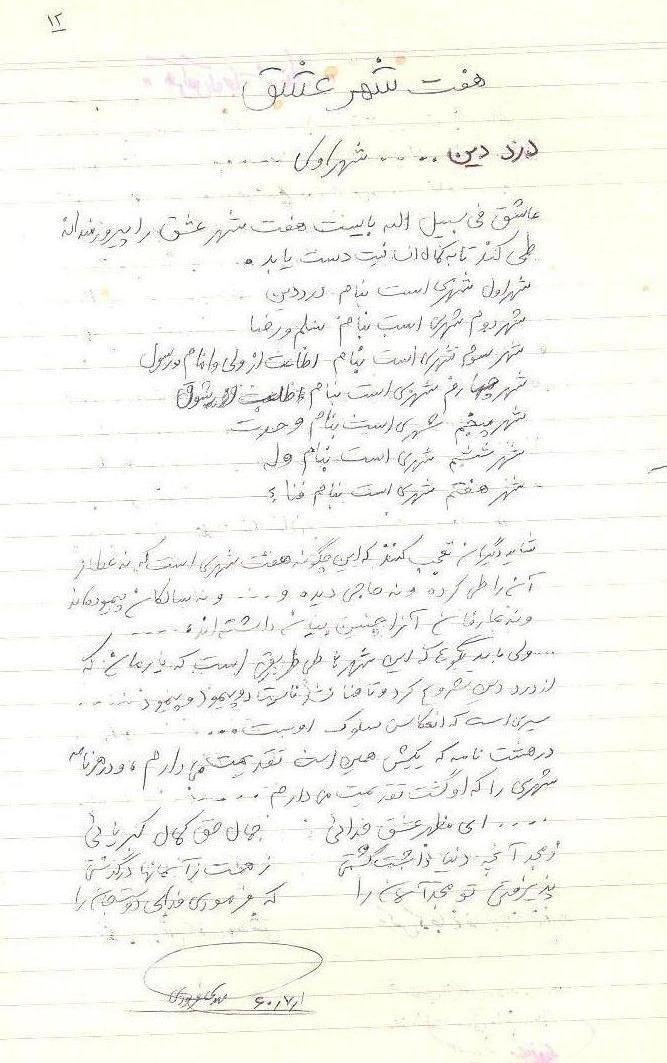 ۱۲
هفت شهر عشق
درد دین .... شهر اول ......
عاشق فی سبیل الله بایست هفت شهر عشق را پیروزمندانه
طی کند تا به کمال انسانیت دست یابد .
شهر اول شهری است بنام درد دین
شهر دوم شهری است بنام سلم و رضا
شهر سوم شهری است بنام اطاعت از ولی و امام و رسول
شهر چهارم شهری است بنام
شهر پنجم شهری است بنام وحدت
شهر ششم شهری است بنام وله
شهر هفتم شهری است بنام فناء
شاید دیگران تعجب کنند که این چگونه هفت شهری است که نه عطار
آن را طی کرده و نه حاجی دیده و .... و نه سالکان پیموده‌اند
و نه عارفان آنرا چنین بیان داشته‌اند .....
.... ولی باید بگویم که این شهرها طی طریقی است که یار ما که
از درد دین شروع کرد و تا فنا و پیمود ....
سیری است که انعکاس سلوک اوست ....
در هشت نامه که یکیش همین است تقدیمت می دارم ، و در هر نامه
شهری را که او گفت تقدیمت می دارم .....
.... ای مظهر عشق خدائی
جمال حق کمال کبریائی
ز مجد آنچه دنیا داشت گذشتی
ز هفت آسمانها درگذشتی
پذیرفتی تو مجد آسمان را
که
۶۰٫۷٫۱